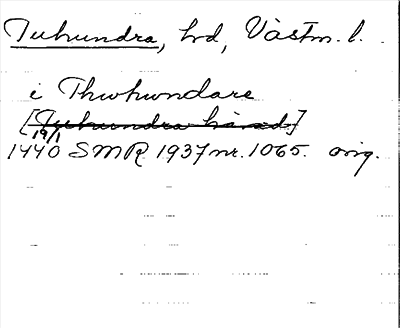 Tuhundra, hd, Västm. l.
i Thwhwndare
[Tuhundra härad]
19/1
1440 SMR 1937 nr. 1065. orig.